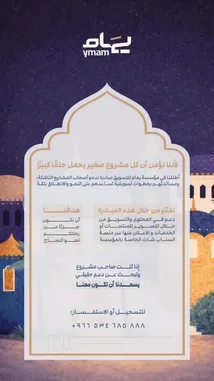 يمام
ymam
لأننا نؤمن أن كل مشروع صغير يحمل حلمًا كبيرًا
أطلقنا في مؤسسة يمام للتسويق مبادرة لدعم أصحاب المشاريع الناشئة،
ومساندتهم بخطوات تسويقية تساعدهم على النمو والانطلاق بثقة
نقدّم من خلال هذه المبادرة
دعم في المحتوى والتسويق من
خلال التصوير للمنتجات أو
الخدمات و الاعلان عنها عبر منصة
السناب شات الخاصة بالمؤسسة
هدفنا
أن نكون
جزءًا من
رحلتكم
نحو النجاح
إذا كنت صاحب مشروع
وتبحث عن دعم حقيقي
يسعدنا أن تكون معنا
للتسجيل أو الاستفسار:
+966 534 685 888